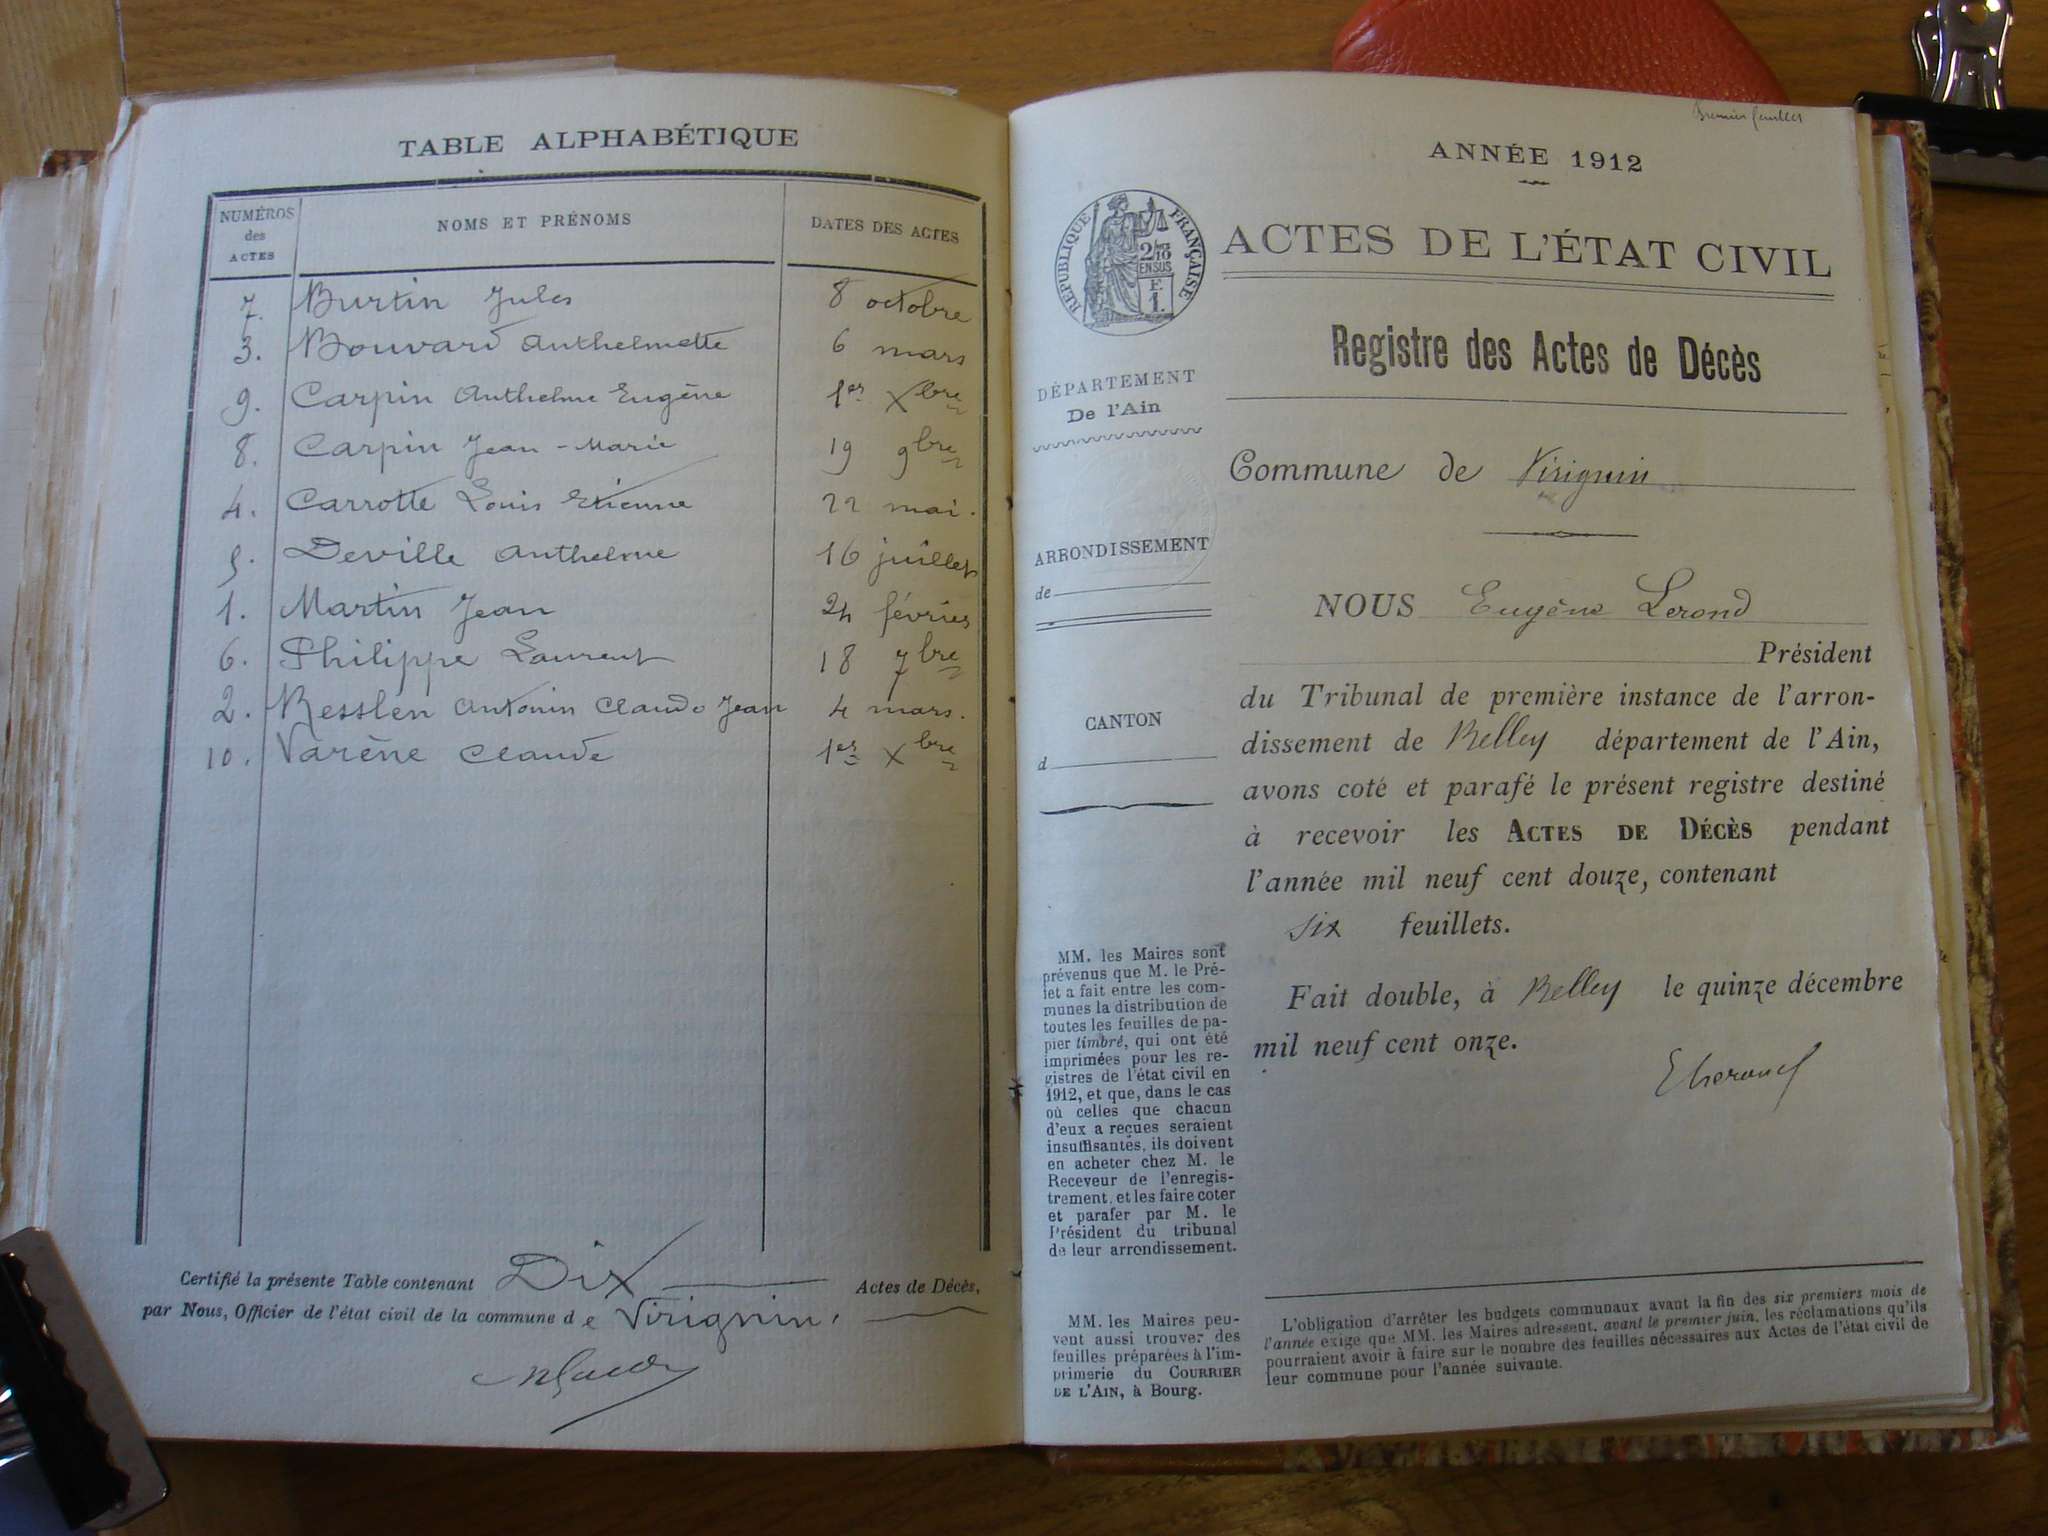 TABLE ALPHABÉTIQUE
NUMÉROS des ACTES NOMS ET PRÉNOMS DATES DES ACTES
7. Burtin Jules 8 octobre
3. Bouvard Anthelmette 6 mars
9. Carpin Anthelme Eugène 1er Xbre
8. Carpin Jean-Marie 19 9bre
4. Carrotte Louis Etienne 22 mai.
5. Deville Anthelme 16 juillet
1. Martin Jean 24 février
6. Philippe Laurent 18 7bre
2. Resslen Antonin Claude Jean 4 mars.
10. Varène Claude 1er Xbre
Certifié la présente Table contenant Dix Actes de Décès,
par Nous, Officier de l'état civil de la commune de Virignin.
Premier feuillet
ANNÉE 1912
RÉPUBLIQUE FRANÇAISE
2/10 EN SUS
F. 1.
ACTES DE L'ÉTAT CIVIL
Registre des Actes de Décès
DÉPARTEMENT
De l'Ain
Commune de Virignin
ARRONDISSEMENT
de
NOUS Eugène Lerond
Président
du Tribunal de première instance de l'arron-
dissement de Belley département de l'Ain,
avons coté et parafé le présent registre destiné
à recevoir les ACTES DE DÉCÈS pendant
l'année mil neuf cent douze, contenant
six feuillets.
Fait double, à Belley le quinze décembre
mil neuf cent onze.
CANTON
d
MM. les Maires sont
prévenus que M. le Pré-
fet a fait entre les com-
munes la distribution de
toutes les feuilles de pa-
pier timbré, qui ont été
imprimées pour les re-
gistres de l'état civil en
1912, et que, dans le cas
où celles que chacun
d'eux a reçues seraient
insuffisantes, ils doivent
en acheter chez M. le
Receveur de l'enregis-
trement, et les faire coter
et parafer par M. le
Président du tribunal
de leur arrondissement.
MM. les Maires peu-
vent aussi trouver des
feuilles préparées à l'im-
primerie du COURRIER
DE L'AIN, à Bourg.
L'obligation d'arrêter les budgets communaux avant la fin des six premiers mois de
l'année exige que MM. les Maires adressent, avant le premier juin, les réclamations qu'ils
pourraient avoir à faire sur le nombre des feuilles nécessaires aux Actes de l'état civil de
leur commune pour l'année suivante.